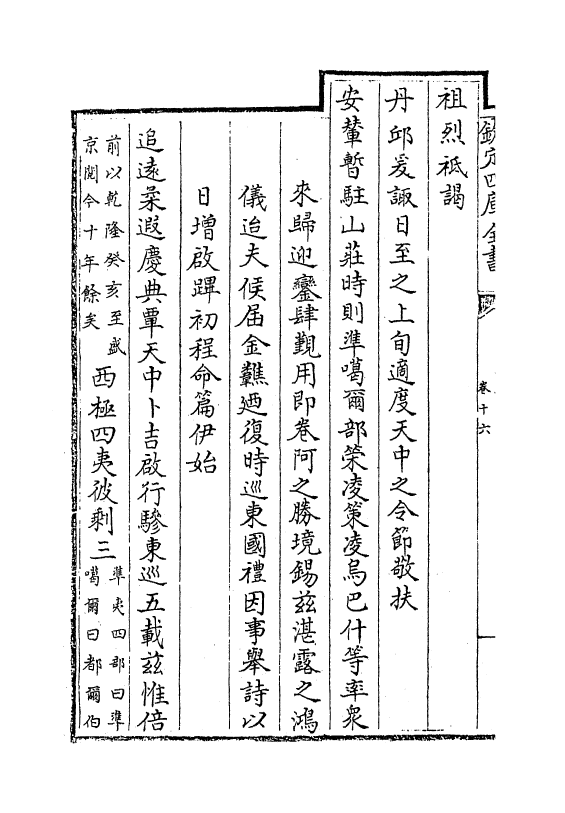 欽定四庫全書
卷十六
祖烈祗謁
丹邱爰諏日至之上旬適度天中之令節敬扶
安輦暫駐山莊時則準噶爾部策凌策凌烏巴什等率衆
來歸迎鑾肆覲用即卷阿之勝境錫兹湛露之鴻
儀迨夫候届金飈廼復時巡東國禮因事舉詩以
日増啟蹕初程命篇伊始
追遠柔遐慶典覃天中卜吉啟行驂東巡五載兹惟倍
前以乾隆癸亥至盛
京閲今十年餘矣
西極四夷彼剩三
準夷四部曰準
噶爾曰都爾伯